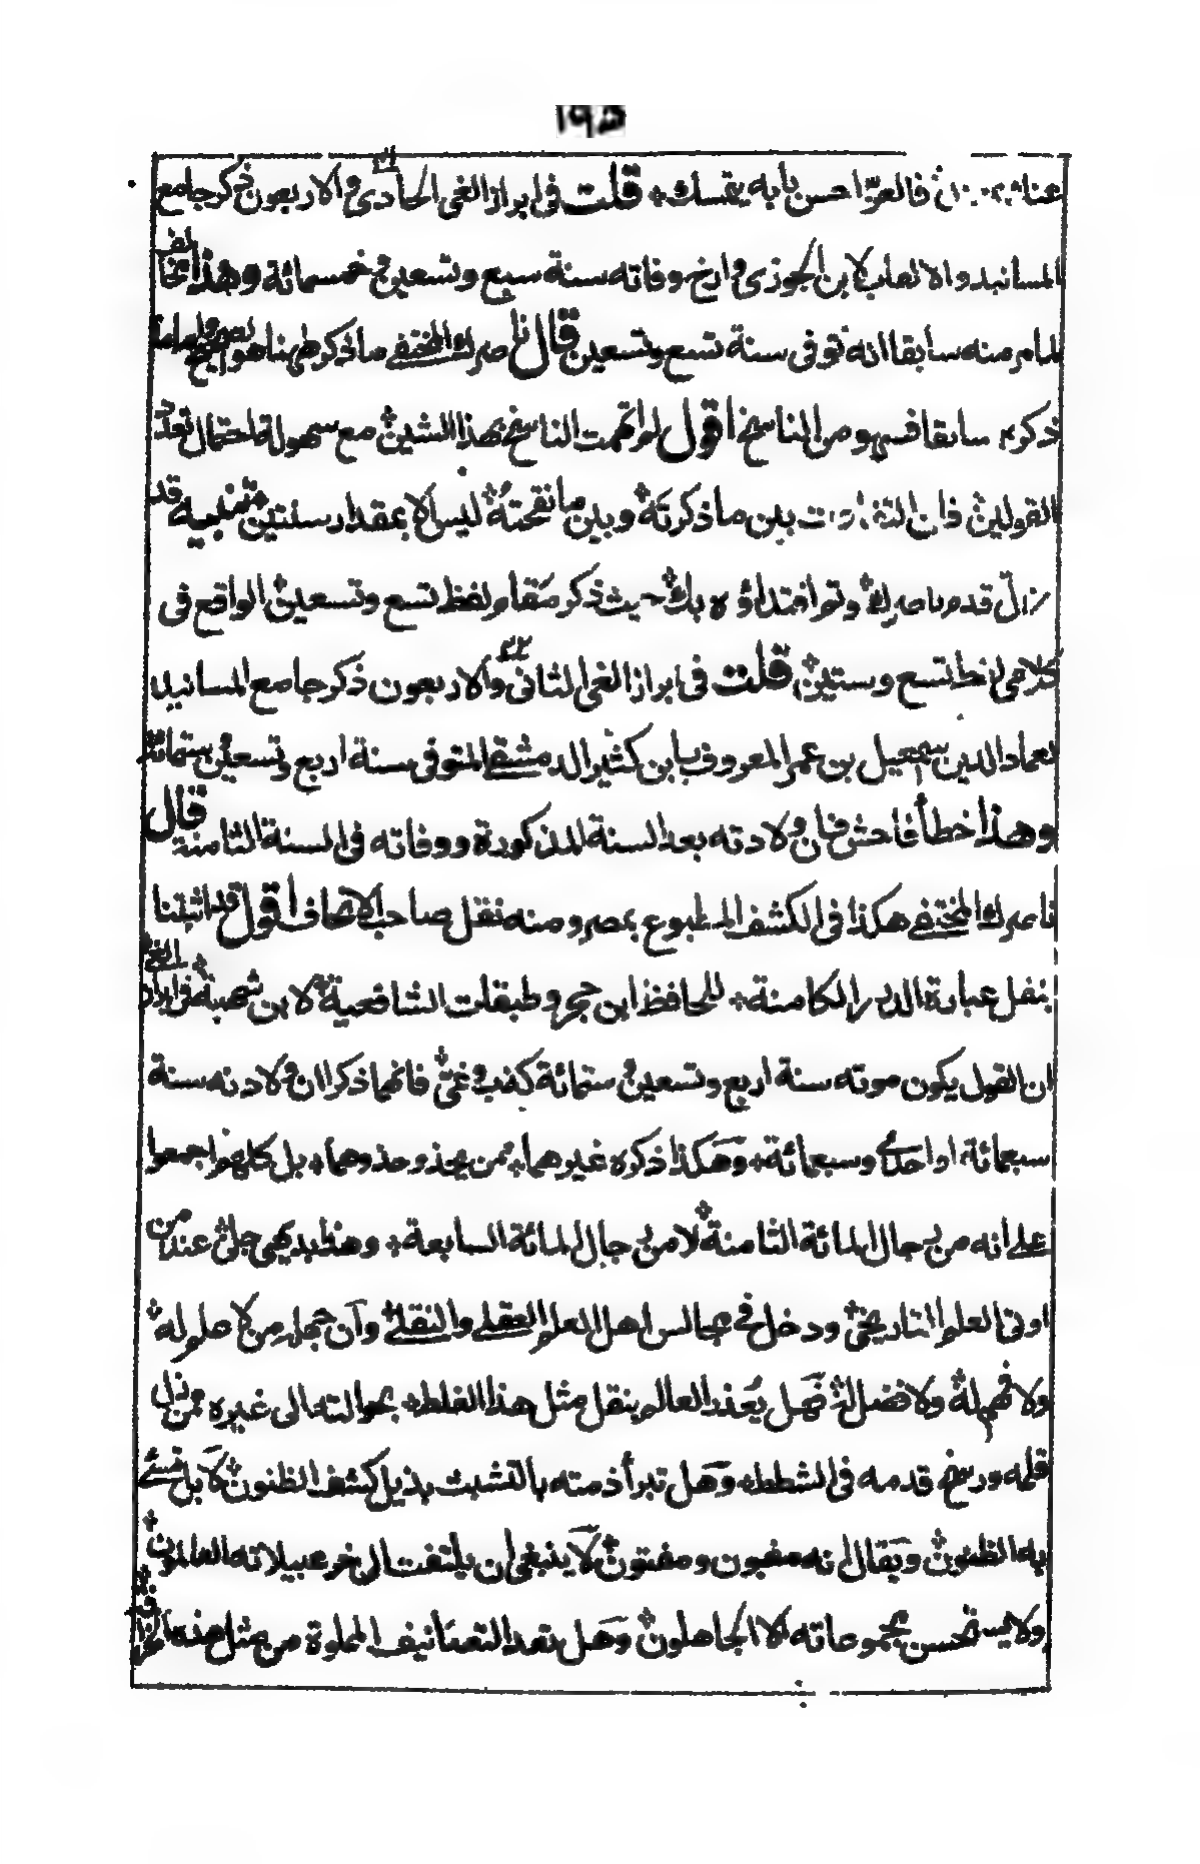 ١٩٥
فالعزّ احسن بابه يتمسك؞ قلت فى ابراز الغى الحادى والاربعون ذكر جامع
المسانيد والالقاب لابن الجوزى وارخ وفاته سنة سبع وتسعين وخمسمائة وهذا مخالف
لما مر منه سابقا انه توفى سنة تسع وتسعين قال ناصرك المختفى ما ذكر ههنا هو الصحيح واما ما
ذكره سابقا فسهو من الناسخ اقول لو اتهمت الناسخ بهذا الشين مع سهولة احتمال تعدد
القولين فان التفاوت بين ما ذكرته وبين ما نقحته ليس الا بمقدار سنتين تنبيه قد
زلّ قدم ناصرك وتم افتداؤه بك حيث ذكر مقام لفظ تسع وتسعين الواقع فى
كلامى لفظ تسع وستين قلت فى ابراز الغى الثانى والاربعون ذكر جامع المسانيد
لعماد الدين اسمعيل بن عمر المعروف بابن كثير الدمشقى المتوفى سنة اربع وتسعين وستمائة
وهذا خطأ فاحش فان ولادته بعد السنة المذكورة ووفاته فى السنة الثامنة قال
ناصرك المختفى هكذا فى الكشف المطبوع بمصر ومنه نقل صاحب الاتحاف اقول قد اثبتنا
بنقل عبارة الدرر الكامنة؞ للحافظ ابن حجر وطبقات الشافعية لابن شهبة فى ابراز الغى
ان القول بكون موته سنة اربع وتسعين وستمائة كذب وغىّ فانهما ذكرا ان ولادته سنة
سبعمائة او احدى وسبعمائة؞ وهكذا ذكره غيرهما؞ ممن يحذو حذوهما؞ بل كلهم اجمعوا
على انه من رجال المائة الثامنة لا من رجال المائة السابعة؞ وهذا بديهى جلى عند من
اوتى العلم التاريخى ودخل فى مجالس اهل العلم العقلى والنقلى وان جهله من لا علم له
ولا فهم له ولا فضل له فهل يعذر العالم بنقل مثل هذا الغلط؞ بحوالته الى غيره ممن زل
قلمه ورسخ قدمه فى الشطط؞ وهل تبرأ ذمته بالتشبث بذيل كشف الظنون كلا بل تسئ
به الظنون ويقال انه مغبون ومفتون لا ينبغى ان يلتفت الى خرعبيلاته العالمون
ولا يستحسن مجموعاته الا الجاهلون وهل تعد التصانيف المملوة من مثل هذه